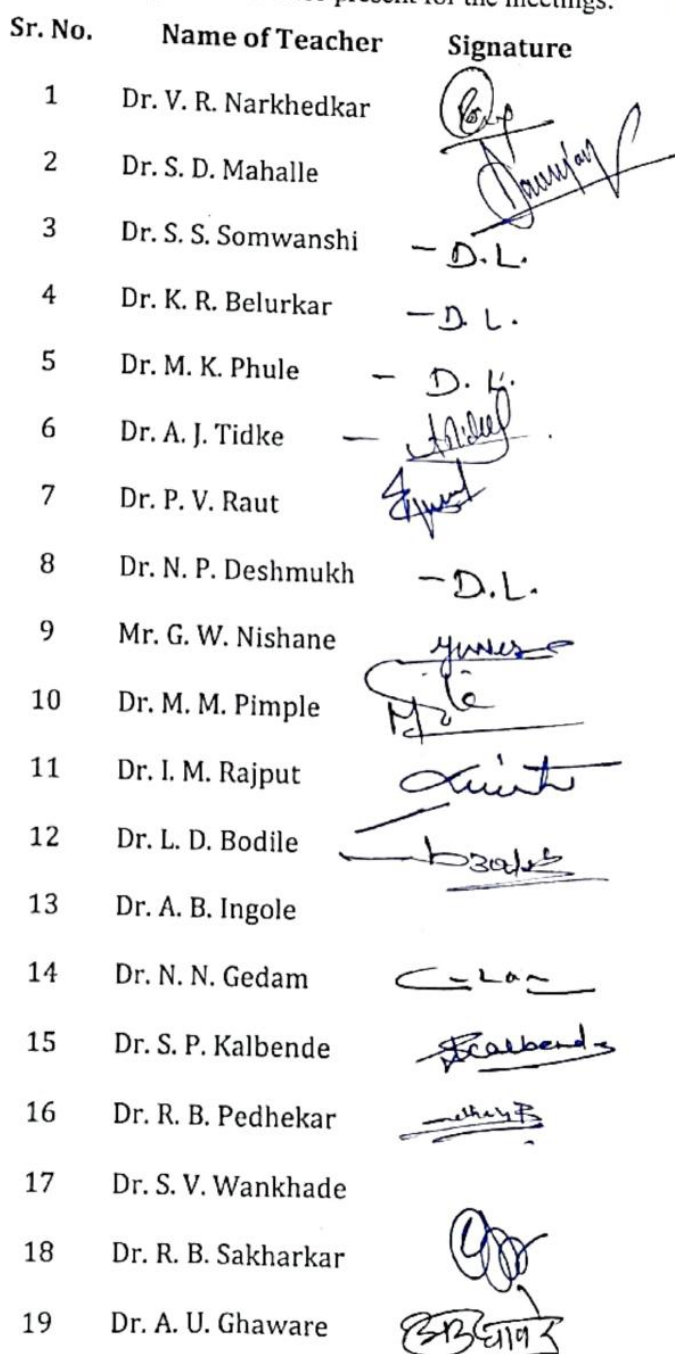 present for the meetings.
Sr. No. Name of Teacher Signature
1 Dr. V. R. Narkhedkar
2 Dr. S. D. Mahalle
3 Dr. S. S. Somwanshi - D.L.
4 Dr. K. R. Belurkar - D. L.
5 Dr. M. K. Phule - D. L.
6 Dr. A. J. Tidke
7 Dr. P. V. Raut
8 Dr. N. P. Deshmukh - D.L.
9 Mr. G. W. Nishane
10 Dr. M. M. Pimple
11 Dr. I. M. Rajput
12 Dr. L. D. Bodile
13 Dr. A. B. Ingole
14 Dr. N. N. Gedam
15 Dr. S. P. Kalbende
16 Dr. R. B. Pedhekar
17 Dr. S. V. Wankhade
18 Dr. R. B. Sakharkar
19 Dr. A. U. Ghaware